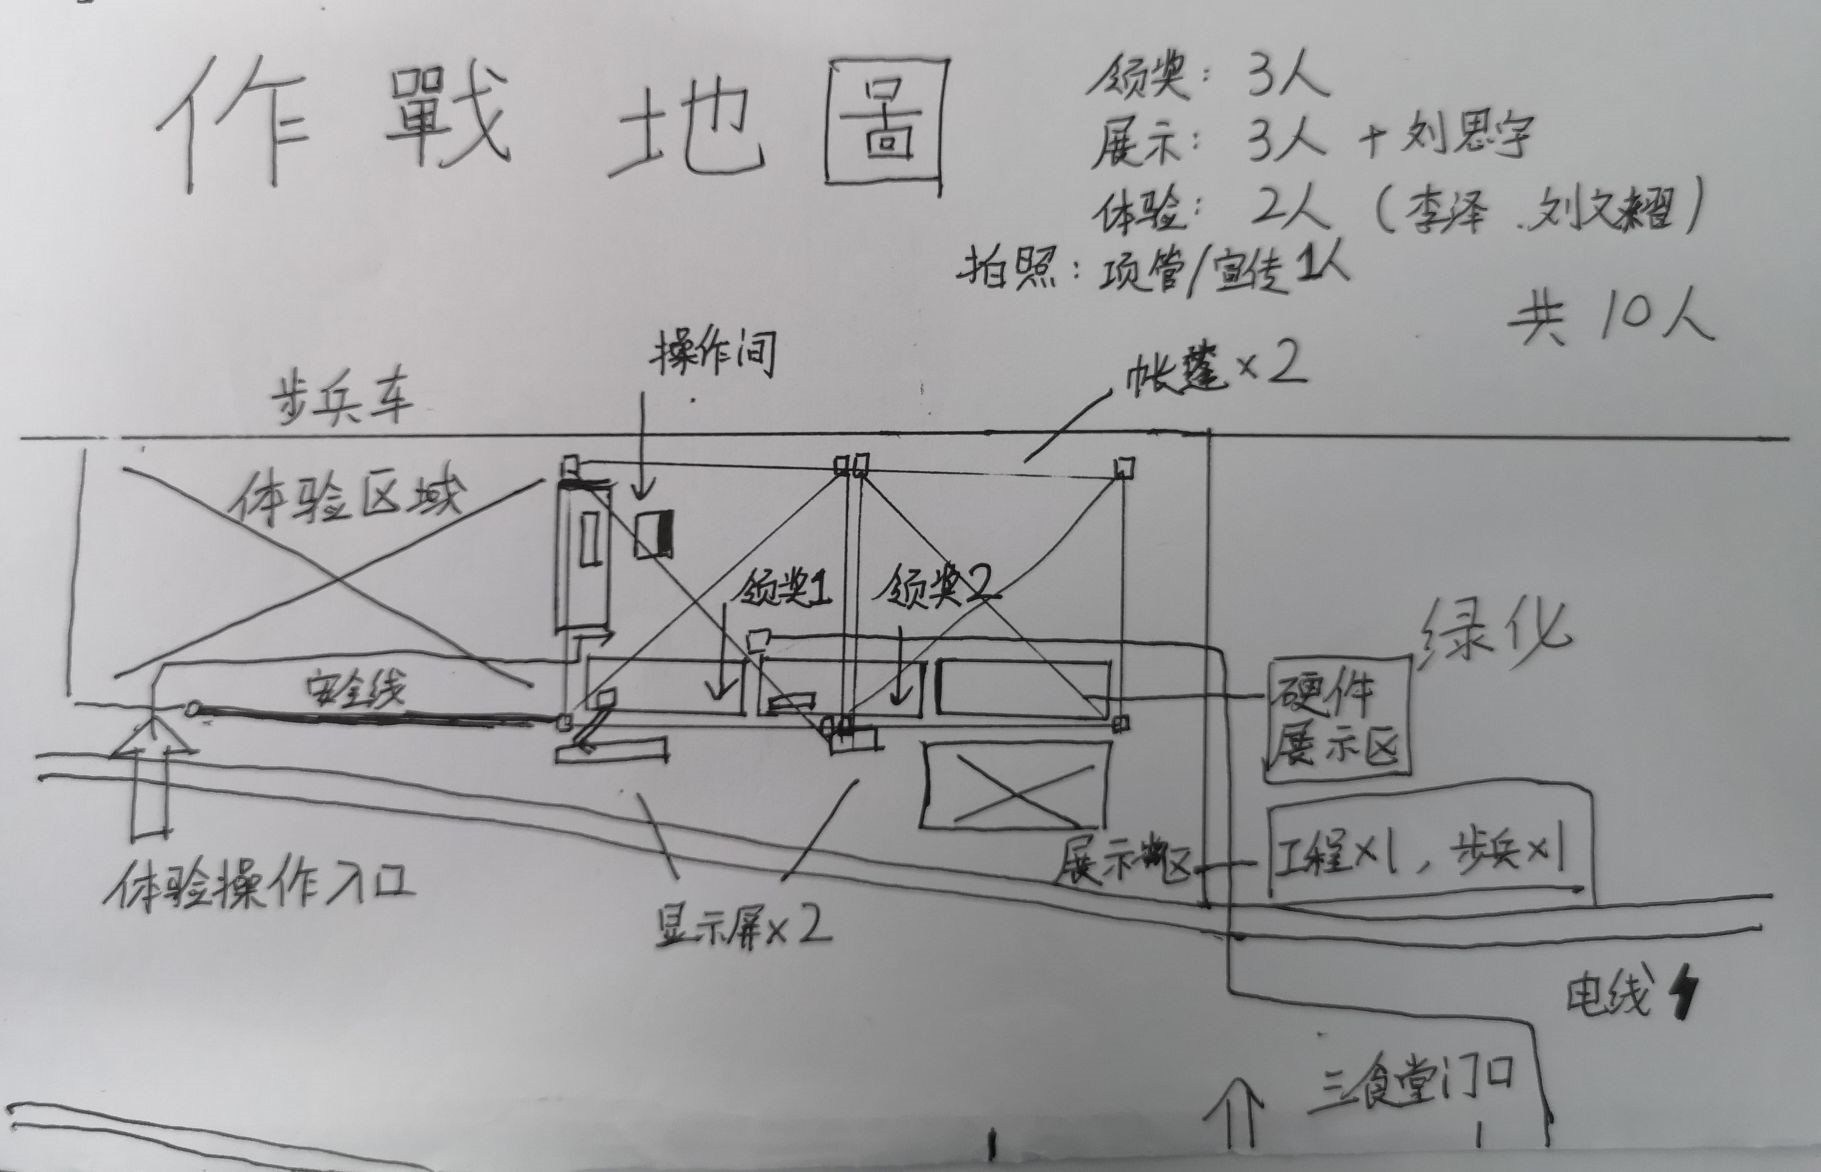 作戰地圖
领奖：3人
展示：3人 + 刘思宇
体验：2人（李泽、刘文耀）
拍照：项管/宣传1人
共10人
操作间
帐篷×2
步兵车
体验区域
领奖1
领奖2
绿化
安全线
硬件
展示区
展示区
工程×1，步兵×1
体验操作入口
显示屏×2
电线
三食堂门口